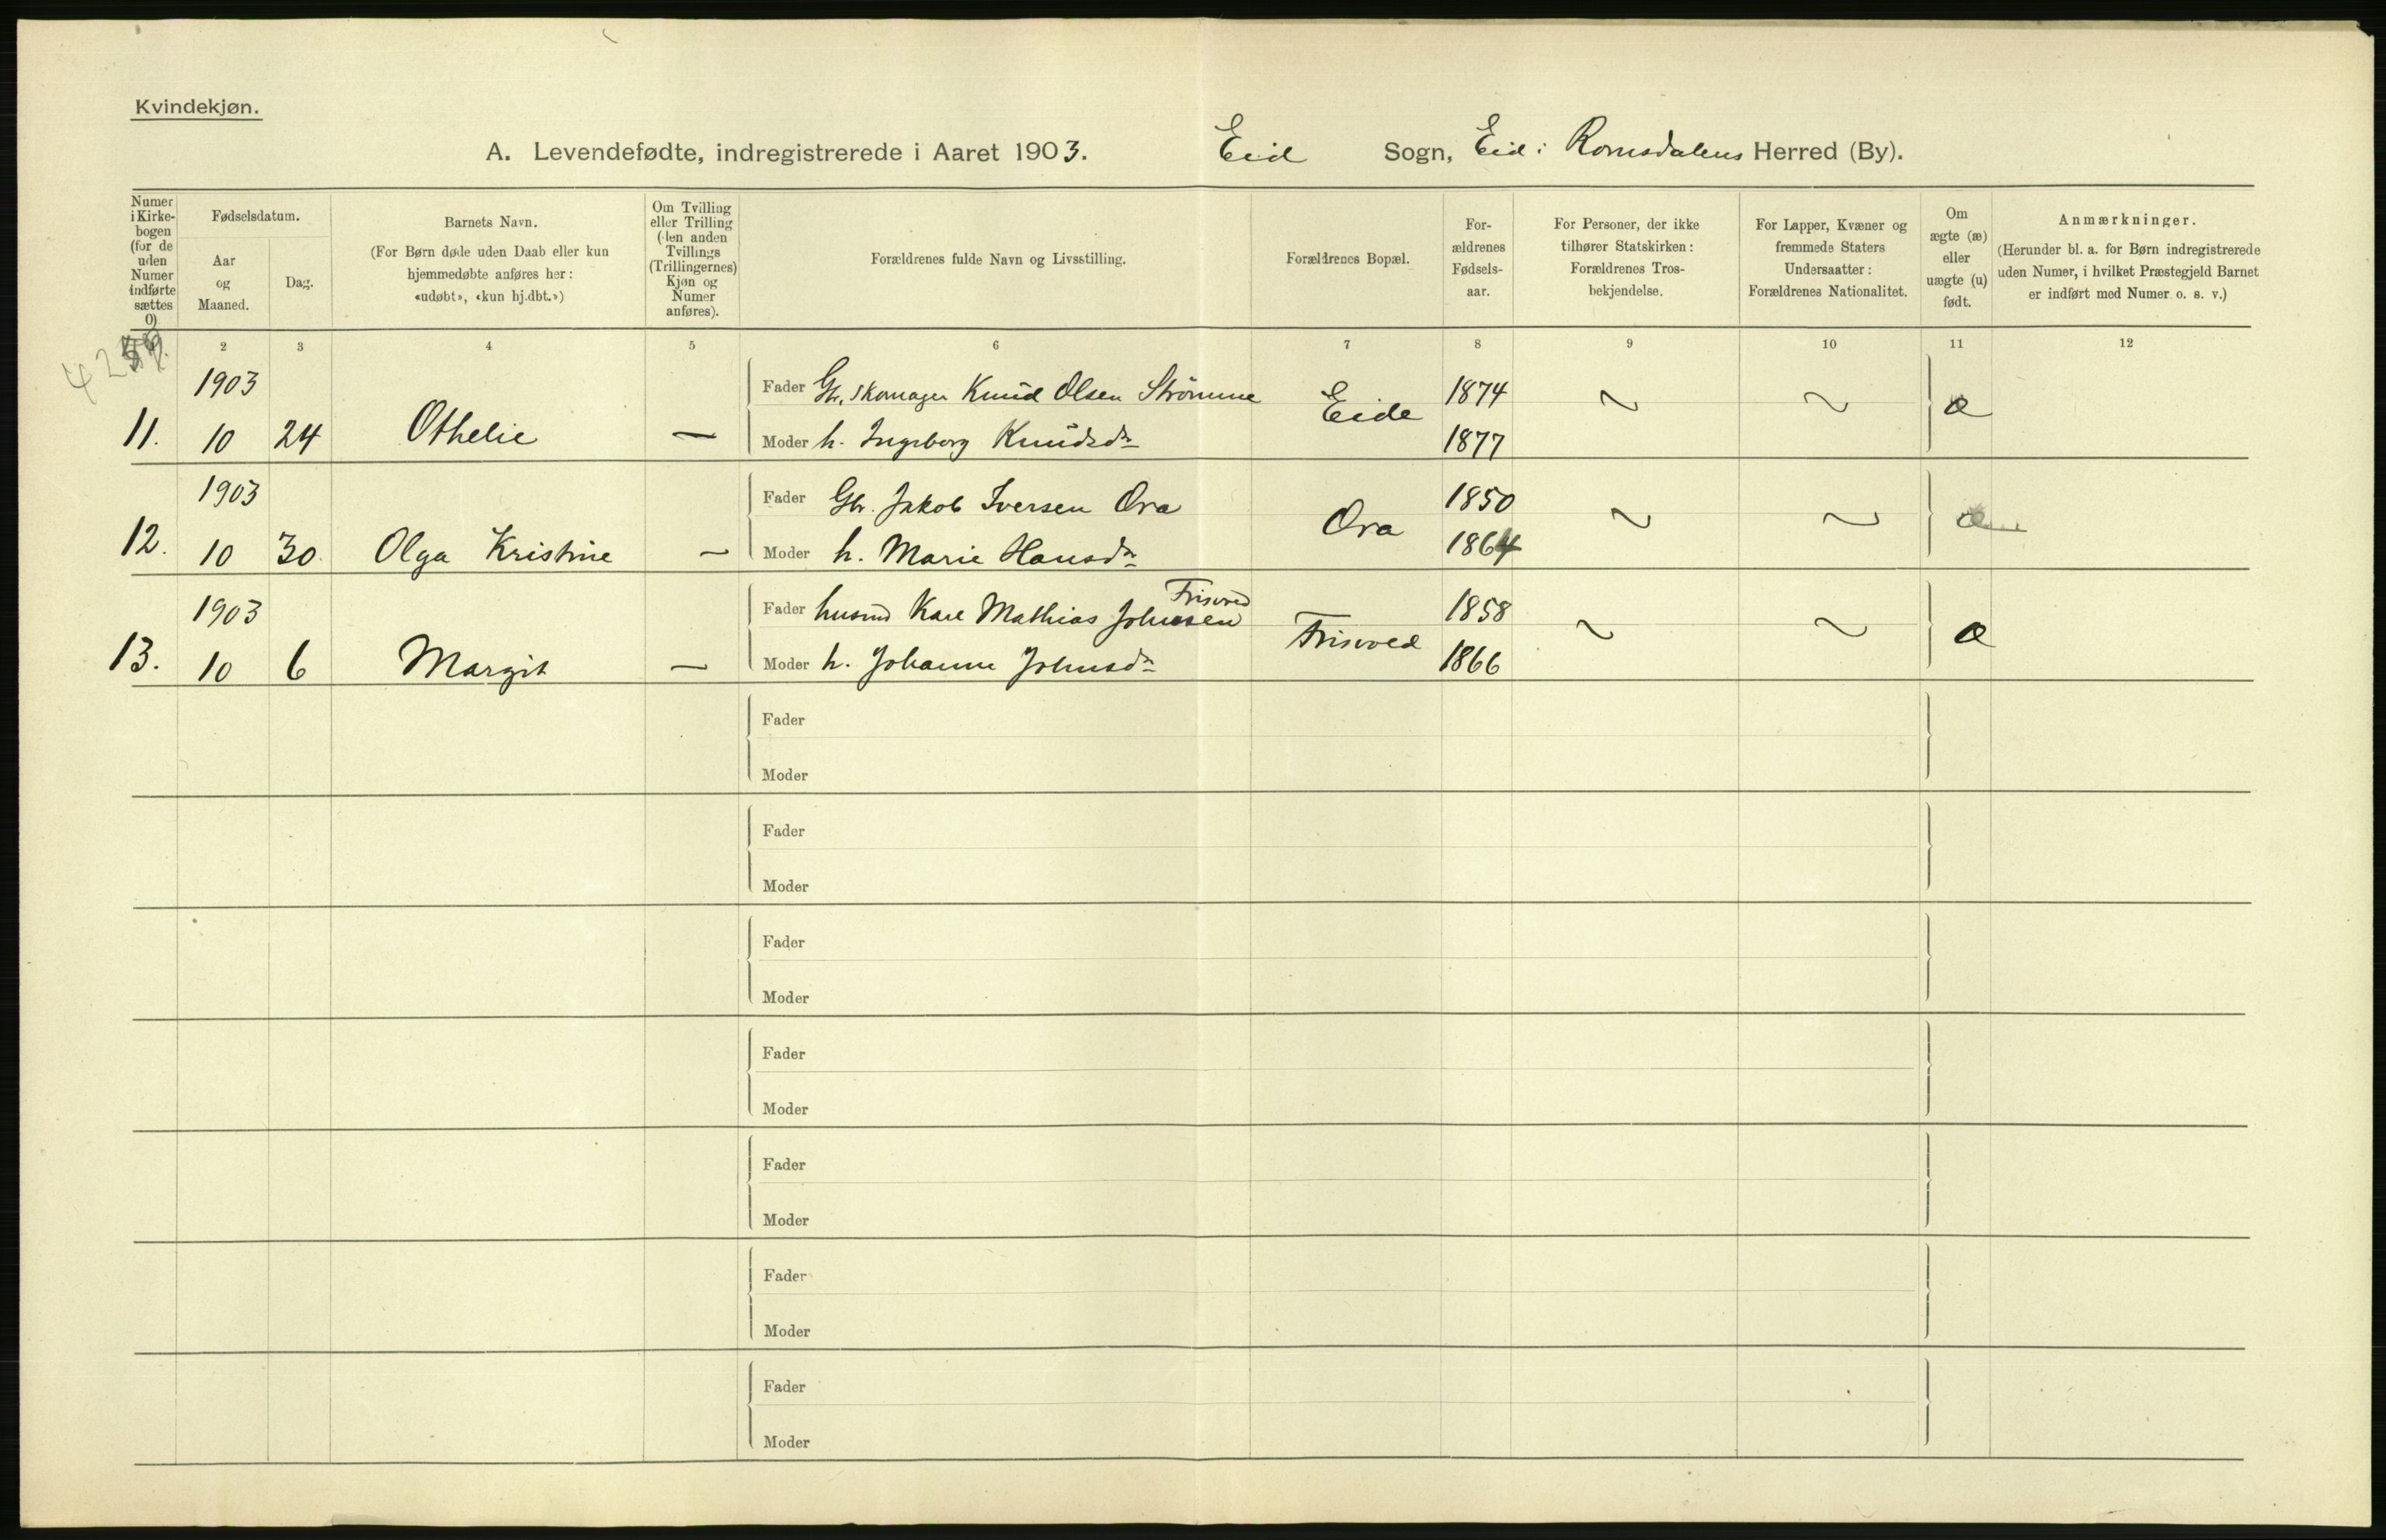 Kvindekjøn.
A. Levendefødte, indregistrerede i Aaret 1903. Eid Sogn, Eid i Romsdalens Herred (By).
Numer i Kirkebogen (for de uden Numer indførte sættes 0)
Fødselsdatum.
Aar og Maaned.
Dag.
Barnets Navn.
(For Børn døde uden Daab eller kun hjemmedøbte anføres her: «udøbt», «kun hj.dbt.»)
Om Tvilling eller Trilling (den anden Tvillings (Trillingernes) Kjøn og Numer anføres).
Forældrenes fulde Navn og Livsstilling.
Forældrenes Bopæl.
Forældrenes Fødselsaar.
For Personer, der ikke tilhører Statskirken: Forældrenes Trosbekjendelse.
For Lapper, Kvæner og fremmede Staters Undersaatter: Forældrenes Nationalitet.
Om ægte (æ) eller uægte (u) født.
Anmærkninger.
(Herunder bl. a. for Børn indregistrerede uden Numer, i hvilket Præstegjeld Barnet er indført med Numer o. s. v.)
2 3 4 5 6 7 8 9 10 11 12
1903 Fader Gbr. Skomager Knud Olsen Strömme Eide 1874 ~ ~ æ
11. 10 24 Othelie — Moder h. Ingeborg Knudsdr 1877
1903 Fader Gbr. Jakob Iversen Ora Ora 1850 ~ ~ æ
12. 10 30. Olga Kristine — Moder h. Marie Hansdr 1864
1903 Fader husmd Karl Mathias Johnsen Frisvold Frisvold 1858 ~ ~ æ
13. 10 6 Margit — Moder h. Johanne Johnsdr 1866
Fader
Moder
Fader
Moder
Fader
Moder
Fader
Moder
Fader
Moder
Fader
Moder
Fader
Moder